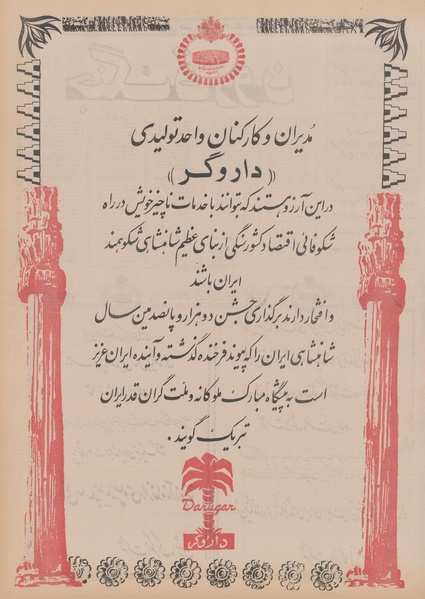 مدیران و کارکنان واحد تولیدی
((داروگر))
در این آرزو هستند که توانند با خدمات ناچیز خویش در راه
شکوفائی اقتصاد کشور سنگی از بنای عظیم شاهنشاهی شکوهمند
ایران باشند
و افتخار دارند برگذاری جشن دو هزار و پانصدمین سال
شاهنشاهی ایران را که پیوند فرخنده گذشته و آینده ایران عزیز
است به پیشگاه مبارک ملوکانه و ملت گران قدر ایران
تبریک گویند.
Darugar
داروگر